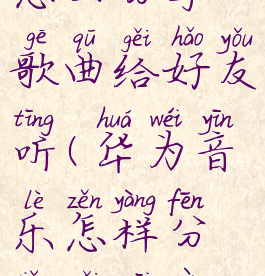 gē qū gěi hǎo yǒu
歌曲给好友
tīng huá wéi yīn
听(华为音
lè zěn yàng fēn
乐怎样分